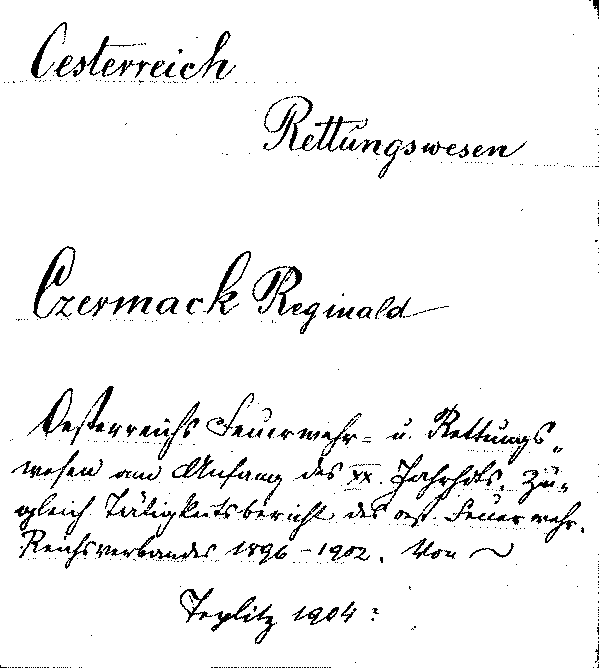 Oesterreich
Rettungswesen
Czermack Reginald
Oesterreichs Feuerwehr- u. Rettungs-
wesen am Anfang des XX. Jahrhdts. Zu-
gleich Tätigkeitsbericht des öst. Feuerwehr-
Reichsverbandes 1896-1902. Von ~
Teplitz 1904: